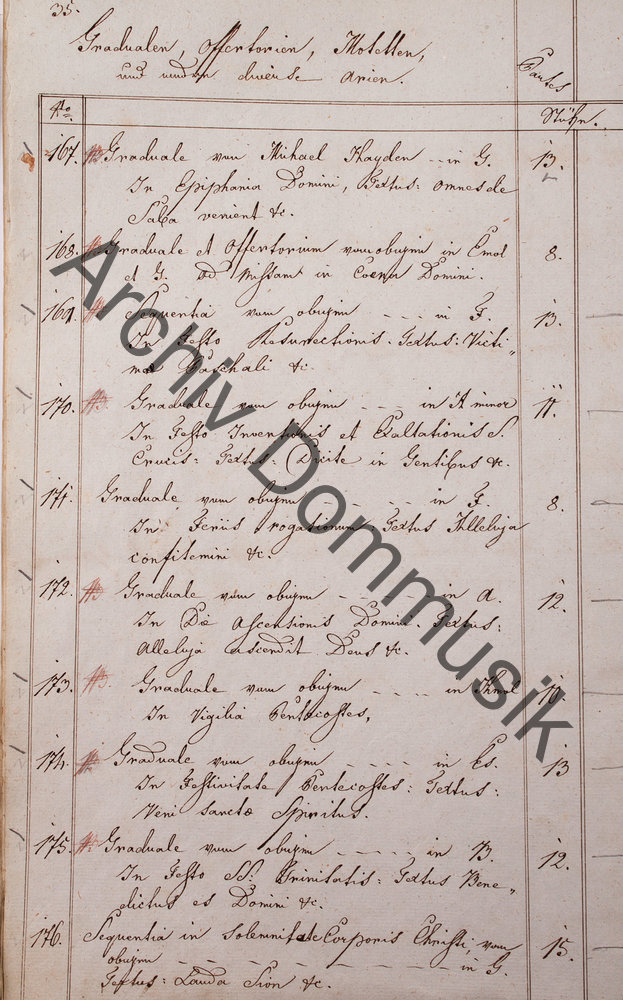 35.
Gradualen, Offertorien, Motetten,
und andere diverse Arien.
Partes
No.
Stück.
167. Graduale vom Michael Hayden -- in G. 13.
In Epiphania Domini, Textus: omnes de
Saba venient &c.
168. Graduale et Offertorium vom obigen in E mol 8.
et G. Ad Missam in Coena Domini.
169. Sequentia vom obigen - - - in F. 13.
In Festo Resurectionis. Textus: Victi„
mae Paschali &c.
170. Graduale vom obigen - - - in A minor 11.
In Festo Inventionis et Exaltationis S.
Crucis: Textus: Dicite in Gentibus &c.
171. Graduale vom obigen - - - - - in F. 8.
In Feriis rogationum: Textus Alleluja
confitemini &c.
172. Graduale vom obigen - - - - - in A. 12.
In Die Ascensionis Domini. Textus:
Alleluja ascendit Deus &c.
173. Graduale vom obigen - - - - in 10
In Vigilia Pentecostes,
174. Graduale vom obigen - - - - - in Es. 13
In Festivitate Pentecostes: Textus:
Veni sanctae Spiritus.
175. Graduale vom obigen - - - - - in B. 12.
In Festo SS: Trinitatis: Textus Bene„
dictus es Domini &c.
176. Sequentia in solemnitate Corporis Christi, vom 15.
obigen - - - - - - - - - - in G.
Textus: Lauda Sion &c.
Archiv Dommusik